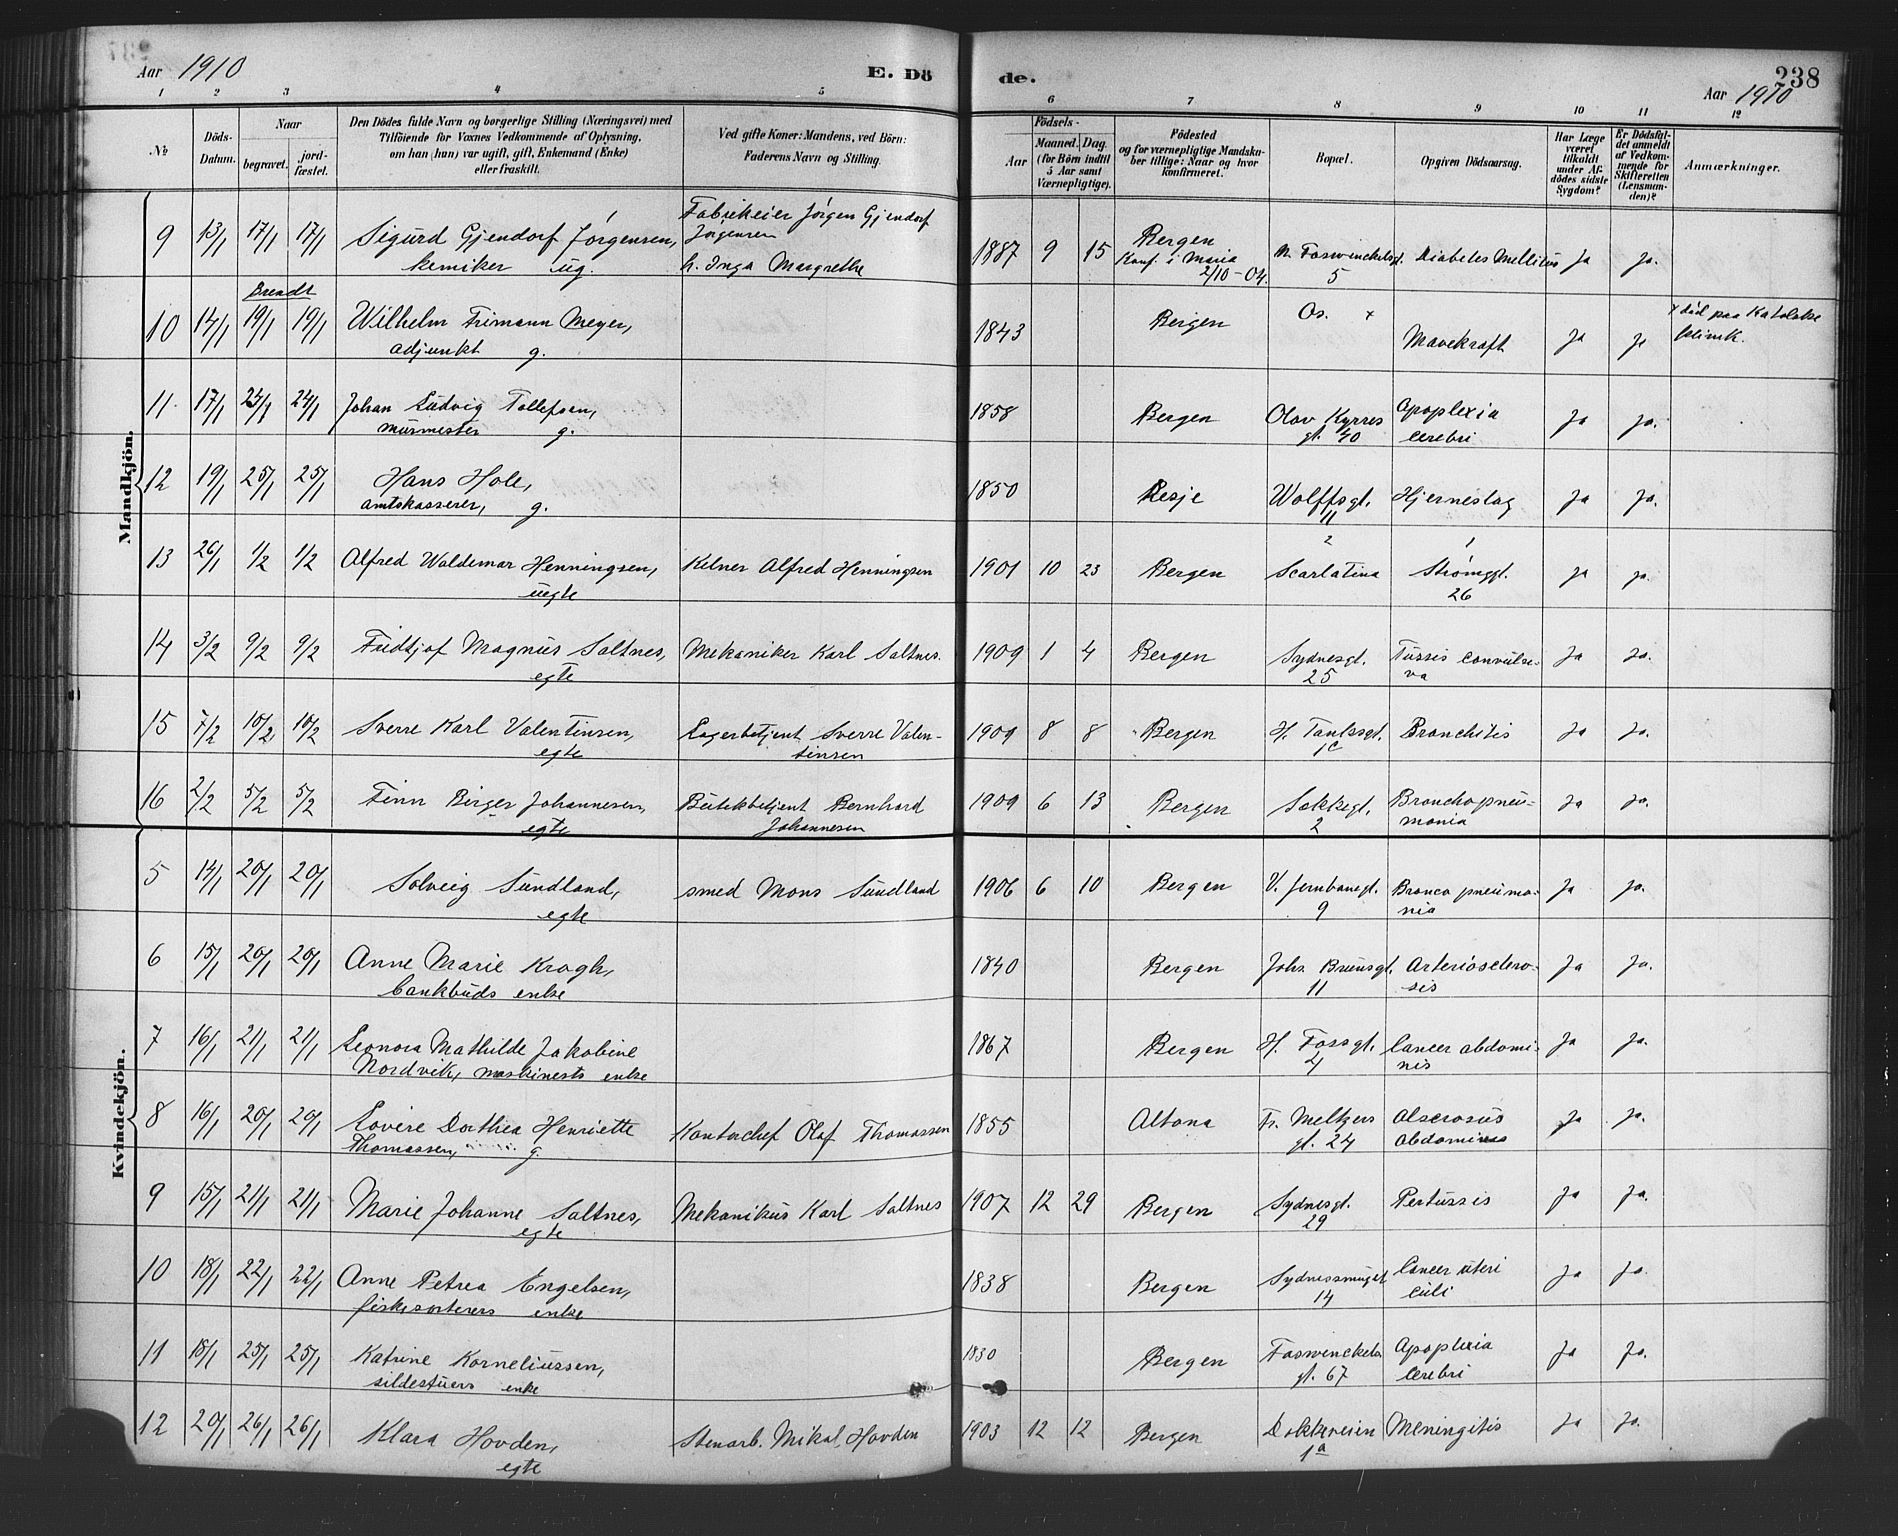 Aar 1910 E. Dö
de. 238
Aar 1910
1 2 3 4 5 6 7 8 9 10 11 12
No
Döds-Datum.
Naar
begravet.
jord-fæstet.
Den Dödes fulde Navn og borgerlige Stilling (Næringsvei) med
Tilföiende for Voxnes Vedkommende af Oplysning,
om han (hun) var ugift, gift, Enkemand (Enke)
eller fraskilt.
Ved gifte Koner: Mandens, ved Börn:
Faderens Navn og Stilling.
Födsels-
Aar
Maaned. Dag.
(for Börn indtil
5 Aar samt
Værnepligtige).
Födested
og for værnepligtige Mandska-
ber tillige: Naar og hvor
konfirmeret.
Bopæl.
Opgiven Dödsaarsag.
Har Læge
været
tilkaldt
under Af-
dödes sidste
Sygdom?
Er Dödsfal-
det anmeldt
af Vedkom-
mende for
Skifteretten
(Lensman-
den)?
Anmærkninger.
Mandkjön.
9 13/1 17/1 17/1 Sigurd Gjendorf Jørgensen, kemiker ug. Fabrikeier Jørgen Gjendorf Jørgensen h. Inga Margrethe 1887 9 15 Bergen Konf. i Maria 2/10-04. N. Foswinckelsgt. 5 Diabetes Mellitus Ja Ja.
Brendt
10 14/1 19/1 19/1 Wilhelm Frimann Meyer, adjunkt g. 1843 Bergen Os. x Mavekræft Ja Ja x død paa Katolske klinik.
11. 17/1 24/1 24/1 Johan Ludvig Tollefsen, murmester g. 1858 Bergen Olav Kyrres gt. 40 Apoplexia cerebri Ja Ja.
12 19/1 25/1 25/1 Hans Hole, amtskasserer, g. 1850 Resje Wolffsgt. 11 Hjerneslag Ja Ja.
13 26/1 1/2 1/2 Alfred Waldemar Henningsen, uegte Kelner Alfred Henningsen 1901 10 23 Bergen 2 Scarlatina 1 Strømgt. 26 Ja Ja.
14 3/2 9/2 9/2 Fridtjof Magnus Saltnes, egte Mekaniker Karl Saltnes. 1909 1 4 Bergen Sydnesgt. 25 Tussis convulsi-va Ja Ja.
15 7/2 10/2 10/2 Sverre Karl Valentinsen, egte Lagerbetjent Sverre Valen-tinsen 1909 8 8 Bergen H. Tanksgt. 1c Bronchitis Ja Ja.
16 2/2 5/2 5/2 Finn Birger Johannesen, egte Butikbetjent Bernhard Johannesen 1909 6 13 Bergen Sokkegt. 2 Bronchopneu-monia Ja Ja.
Kvindekjön.
5 14/1 20/1 20/1 Solveig Sundland, egte smed Mons Sundland 1906 6 10 Bergen V. Jernbanegt. 9 Bronco pneumo-nia Ja Ja.
6 15/1 20/1 20/1 Anne Marie Krogh, bankbuds enke 1840 Bergen Johs Brunsgt. 11 Arteriosclero-sis Ja Ja.
7 16/1 21/1 21/1 Leonora Mathilde Jakobine Nordvik, maskinests enke 1867 Bergen H. Fossgt. 4 Cancer abdomi-nis Ja Ja.
8 16/1 20/1 20/1 Lovise Dorthea Henriette Thomassen, g. Kontorchef Olaf Thomassen 1855 Altona Fr. Meltzers gt. 24 abdominis Ja Ja.
9 15/1 21/1 21/1 Marie Johanne Saltnes, egte Mekanikus Karl Saltnes 1907 12 29 Bergen Sydnesgt. 29 Pertussis Ja Ja.
10 18/1 22/1 22/1 Anne Petrea Engelsen, fiskesorterers enke 1838 Bergen Sydnessmuget 14 Cancer uteri Ja Ja.
11 18/1 25/1 25/1 Katrine Korneliussen, sildestuers enke 1830 Bergen Foswinckels gt. 67 Apoplexia cerebri Ja Ja.
12 20/1 26/1 26/1 Klara Hovden, egte Stenarb. Mikal Hovden 1903 12 12 Bergen Dokkeveien 1a Meningitis Ja Ja.